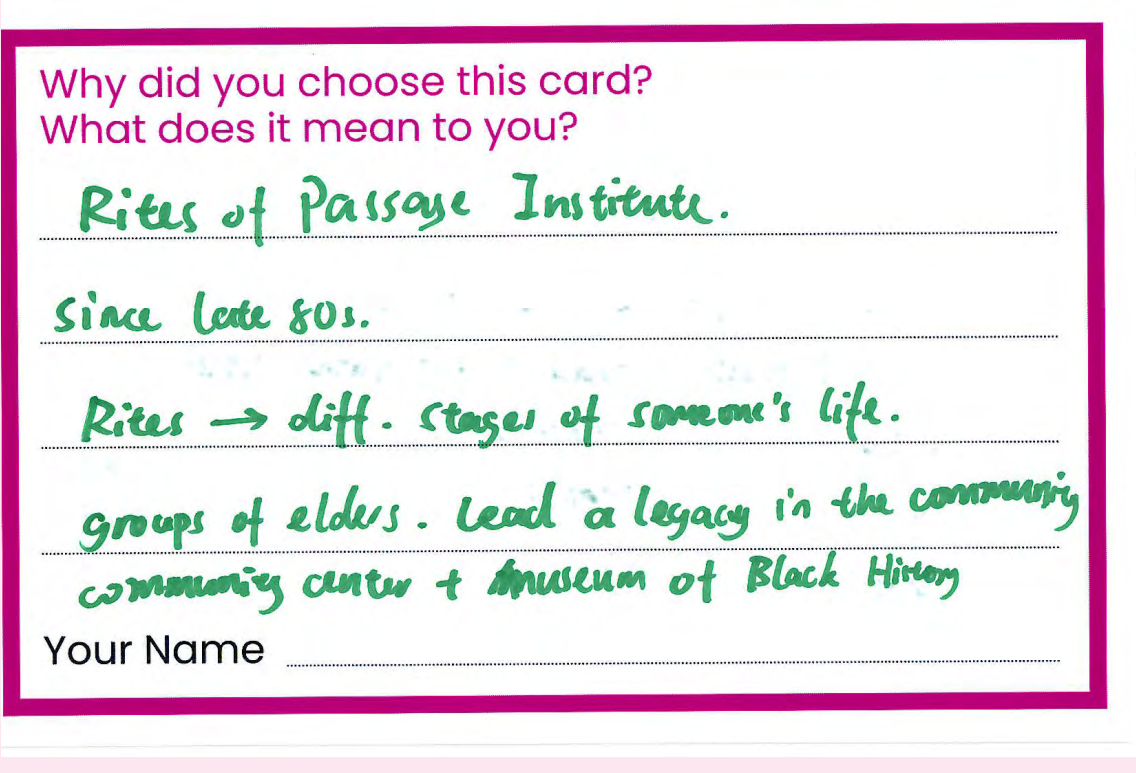 Why did you choose this card?
What does it mean to you?
Rites of Passage Institute.
Since late 80s.
Rites → diff. stages of someone's life.
groups of elders. Lead a legacy in the community
community center + museum of Black History
Your Name